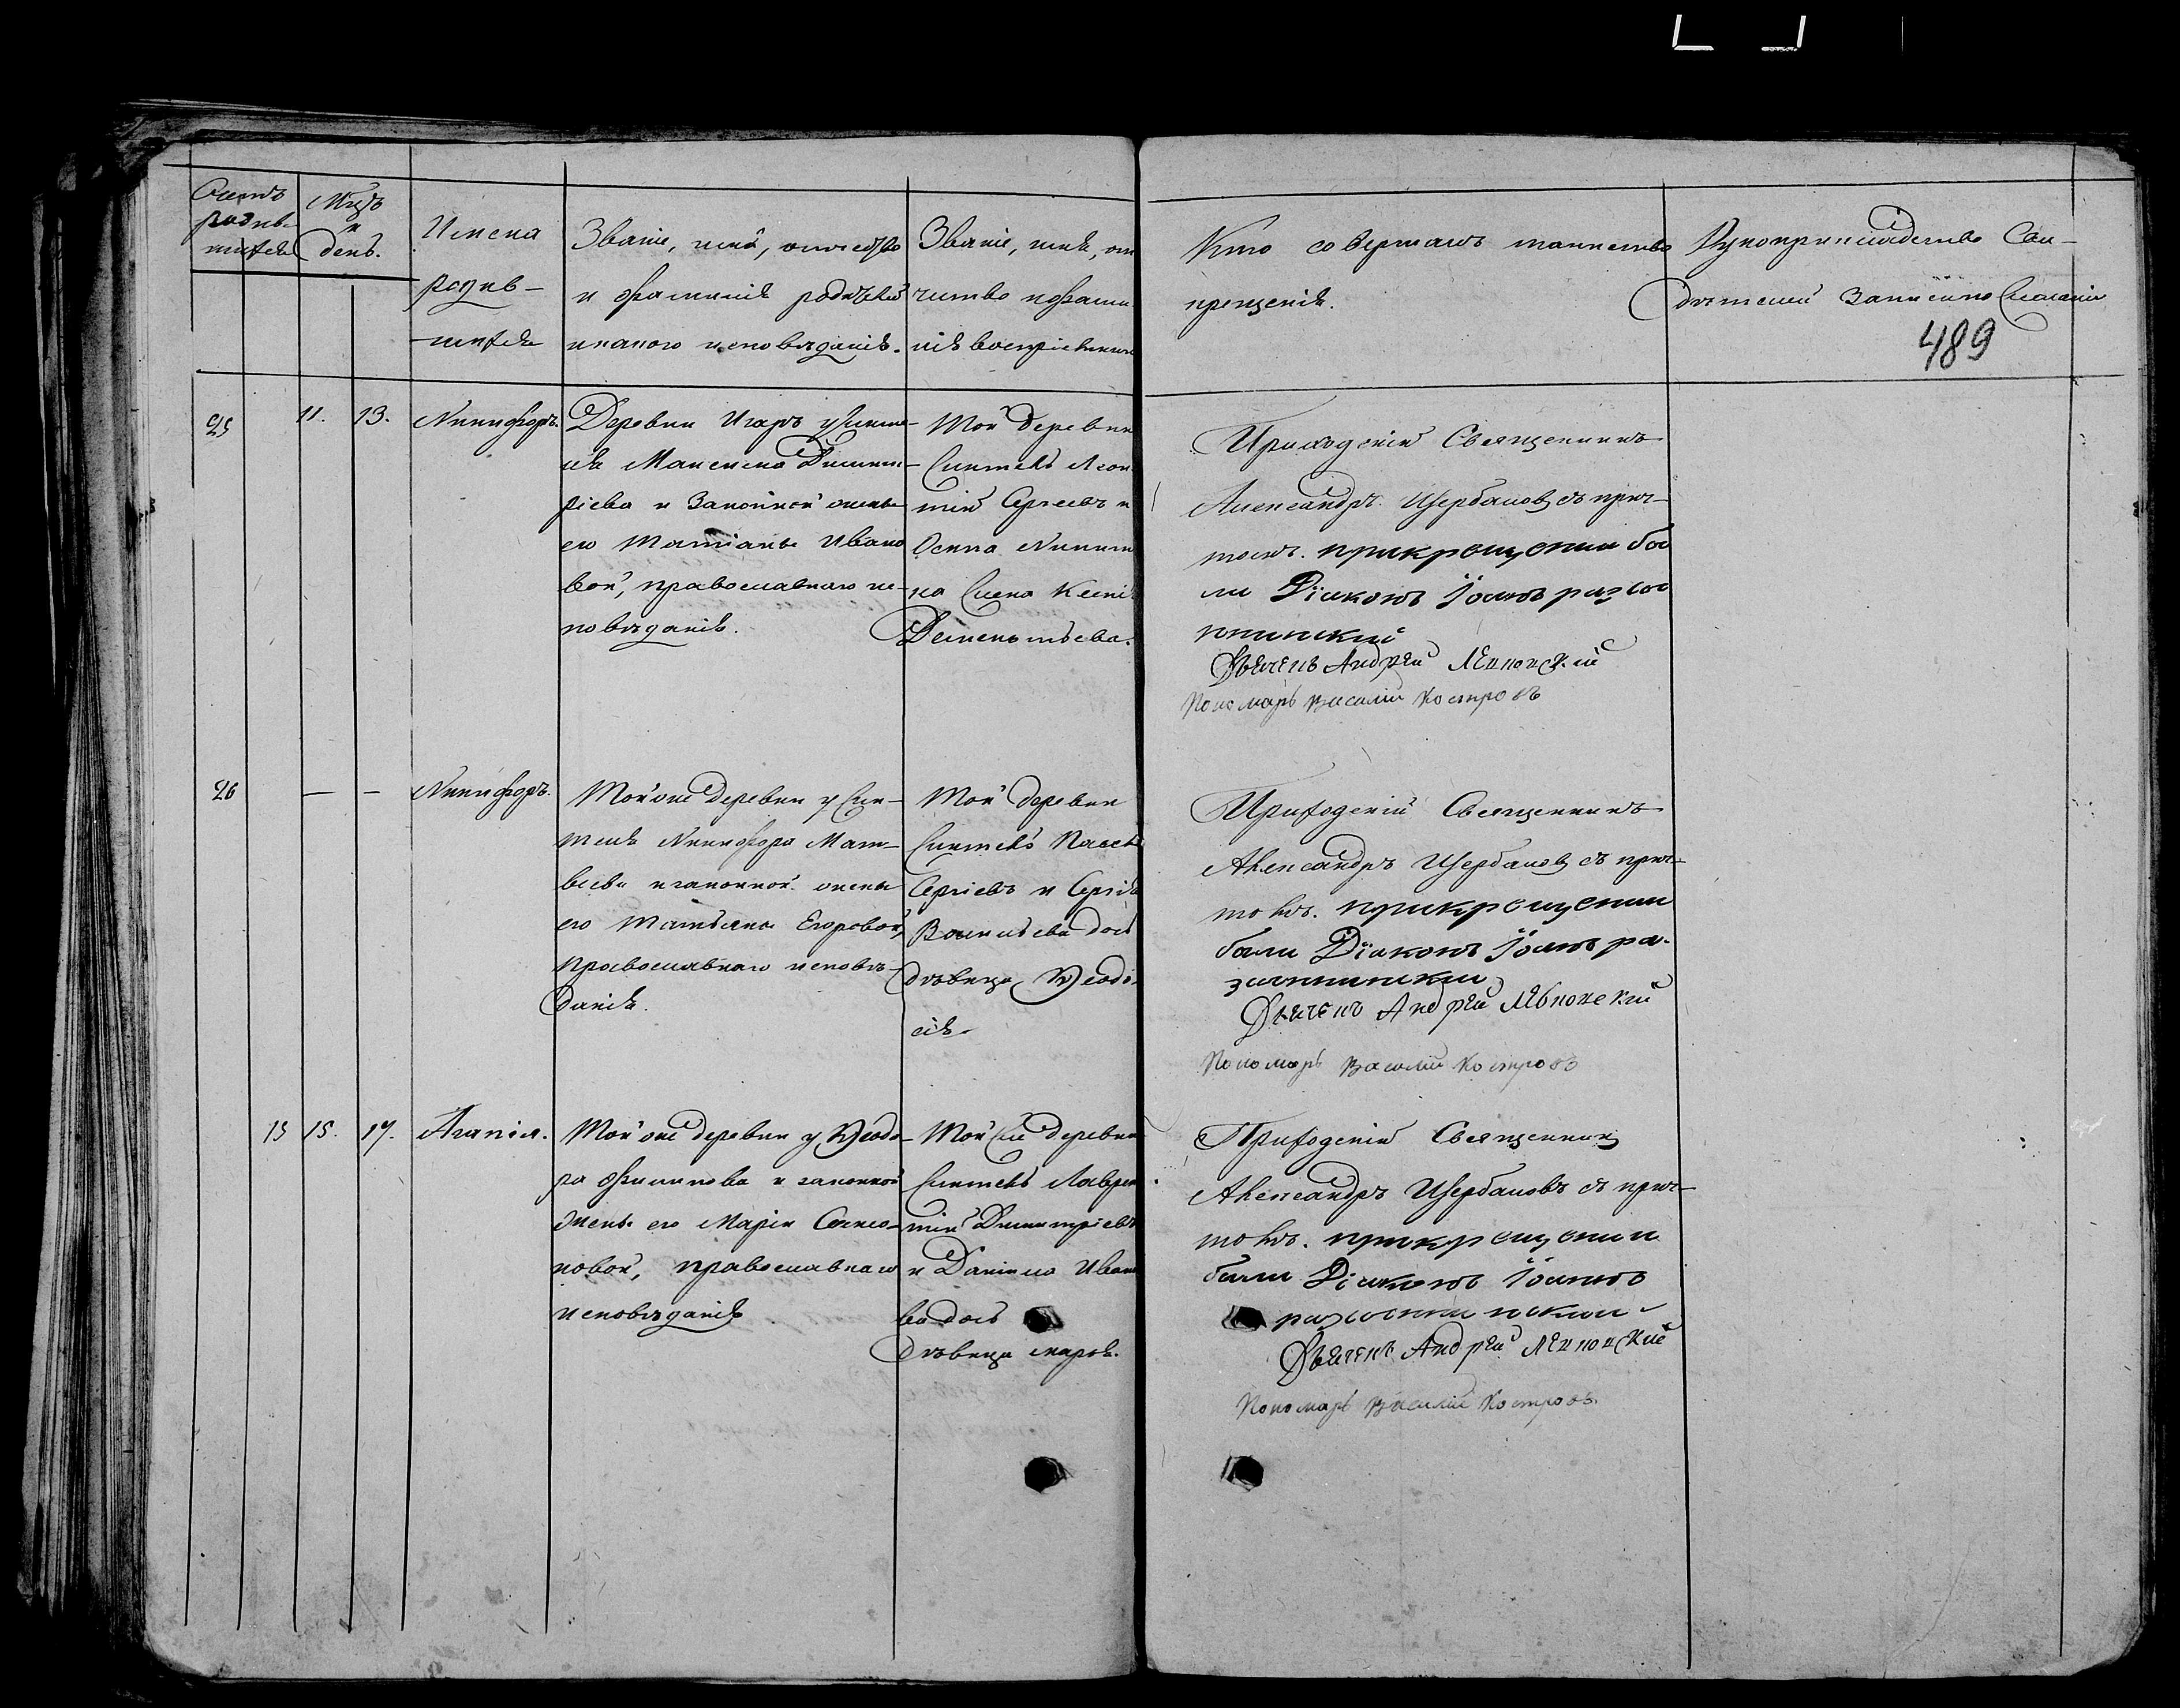 Счетъ
родив-
шихся
Мцъ
и
день.
Имена
родив-
шихся
Званіе, имя, отчество
и фамилія родителей
и какого исповѣданія.
Званіе, имя, отче
чество и фами
лія воспріемник
Кто совершалъ таинство
крещенія.
Рукоприкладство Сви-
дѣтелей записи по Желанію
489
25
11. 13.
Никифоръ.
Деревни Игаръ у жите-
ля Максима Дмит-
ріева и Законной жены
его Татіаны Ивано
вой, православнаго ис-
повѣданія.
Той деревни
житель Леон
тій Сергеевъ и
Осипа Никити
на жена Ксенія
Дементьева.
Приходскій Священникъ
Александръ Щербаковъ съ прич-
томъ. при крещении бы
ли Діаконъ Іоаннъ
Дьячекъ Андрей
Пономарь Василій Костровъ
26
— —
Никифоръ.
Той же деревни у жи-
теля Никифора Мат-
веева и законной жены
его Татьяны Егоровой,
Православнаго исповѣ-
данія.
Той деревни
житель Павелъ
Сергіевъ и Сергія
Васильева дочь
дѣвица Ѳеодо-
сія
Приходскій Священникъ
Александръ Щербаковъ съ прич-
томъ. при крещении
были Діаконъ Іоаннъ ра-
Дьячекъ Андрей
Пономарь Василій Костровъ
13 15. 17.
Агапія.
Той же деревни у Ѳеодо-
ра Филиппова и законной
жены его Маріи Семио-
новой, православнаго
исповѣданія
Той же деревни
житель Лаврен
тій Димитріевъ
и Данило Ивано
ва дочь
дѣвица Марѳа.
Приходскій Священникъ
Александръ Щербаковъ съ прич-
томъ. при крещении
были Діаконъ Іоаннъ
Дьячекъ Андрей
Пономарь Василій Костровъ.